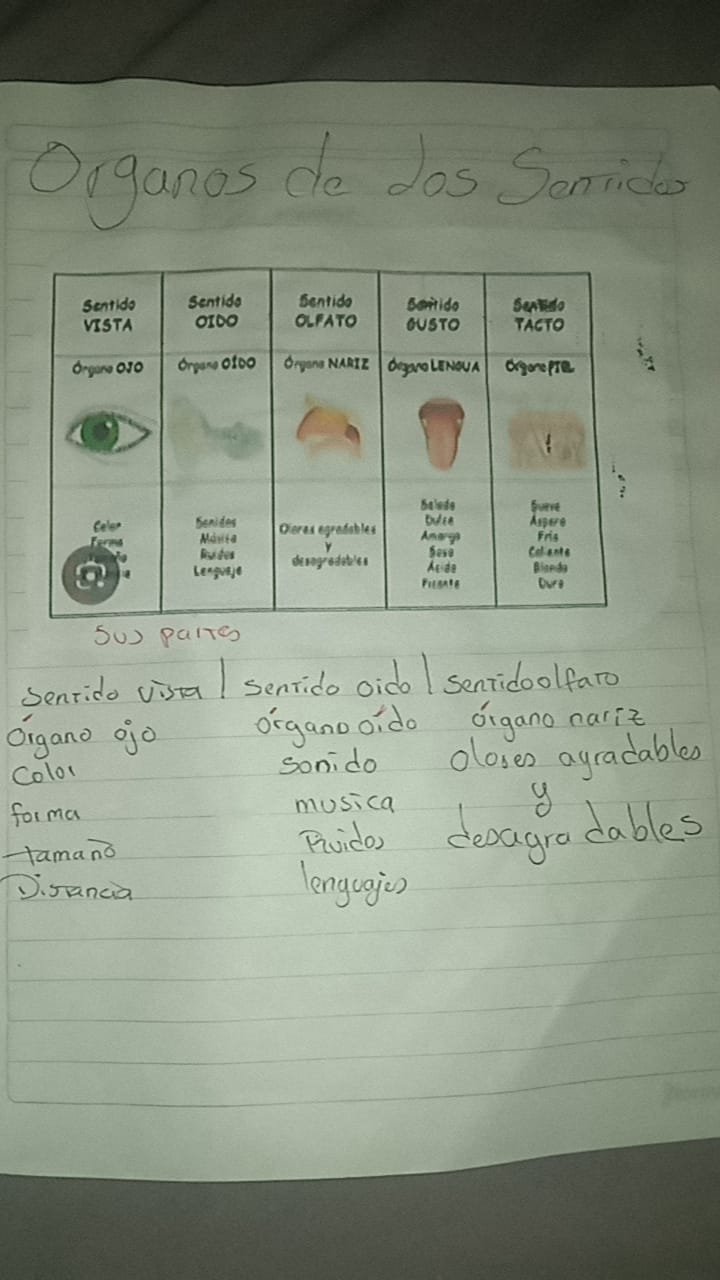 Organos de los Sentidos
Sentido VISTA
Órgano OJO
Color
Forma
Sentido OIDO
Órgano OÍDO
Sonidos
Música
Ruidos
Lenguaje
Sentido OLFATO
Órgano NARIZ
Olores agradables
y
desagradables
Sentido GUSTO
Órgano LENGUA
Salado
Dulce
Amargo
Soso
Ácido
Picante
Sentido TACTO
Órgano PIEL
Suave
Áspero
Frío
Caliente
Blando
Duro
Sus partes
Sentido vista | sentido oido | sentido olfato
Órgano ojo órgano oído órgano nariz
Color sonido olores agradables
forma musica y
tamaño Ruidos desagradables
Distancia lenguajes